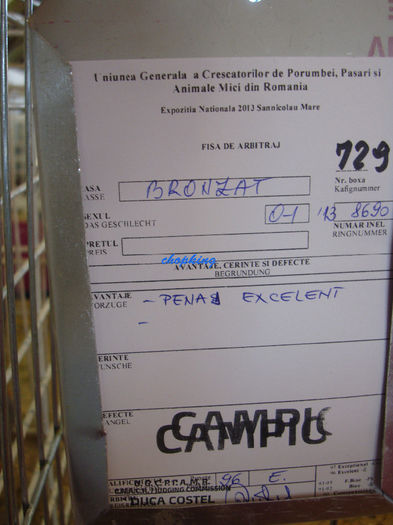 Uniunea Generala a Crescatorilor de Porumbei, Pasari si
Animale Mici din Romania
Expozitia Nationala 2013 Sannicolau Mare
FISA DE ARBITRAJ
729
Nr. boxa
Kafignummer
ASA
ASSE
BRONZAT
SEXUL
DAS GESCHLECHT
0-1
'13 8690
NUMAR INEL
RINGNUMMER
PRETUL
PREIS
chopking
AVANTAJE, CERINTE SI DEFECTE
BEGRUNDUNG
VANTAJE
ORZUGE
- PENAJ EXCELENT
-
ERINTE
UNSCHE
EFECTE
ANGEL
CAMPIU
96 E.
JUDGING COMMISSION
DUCA COSTEL